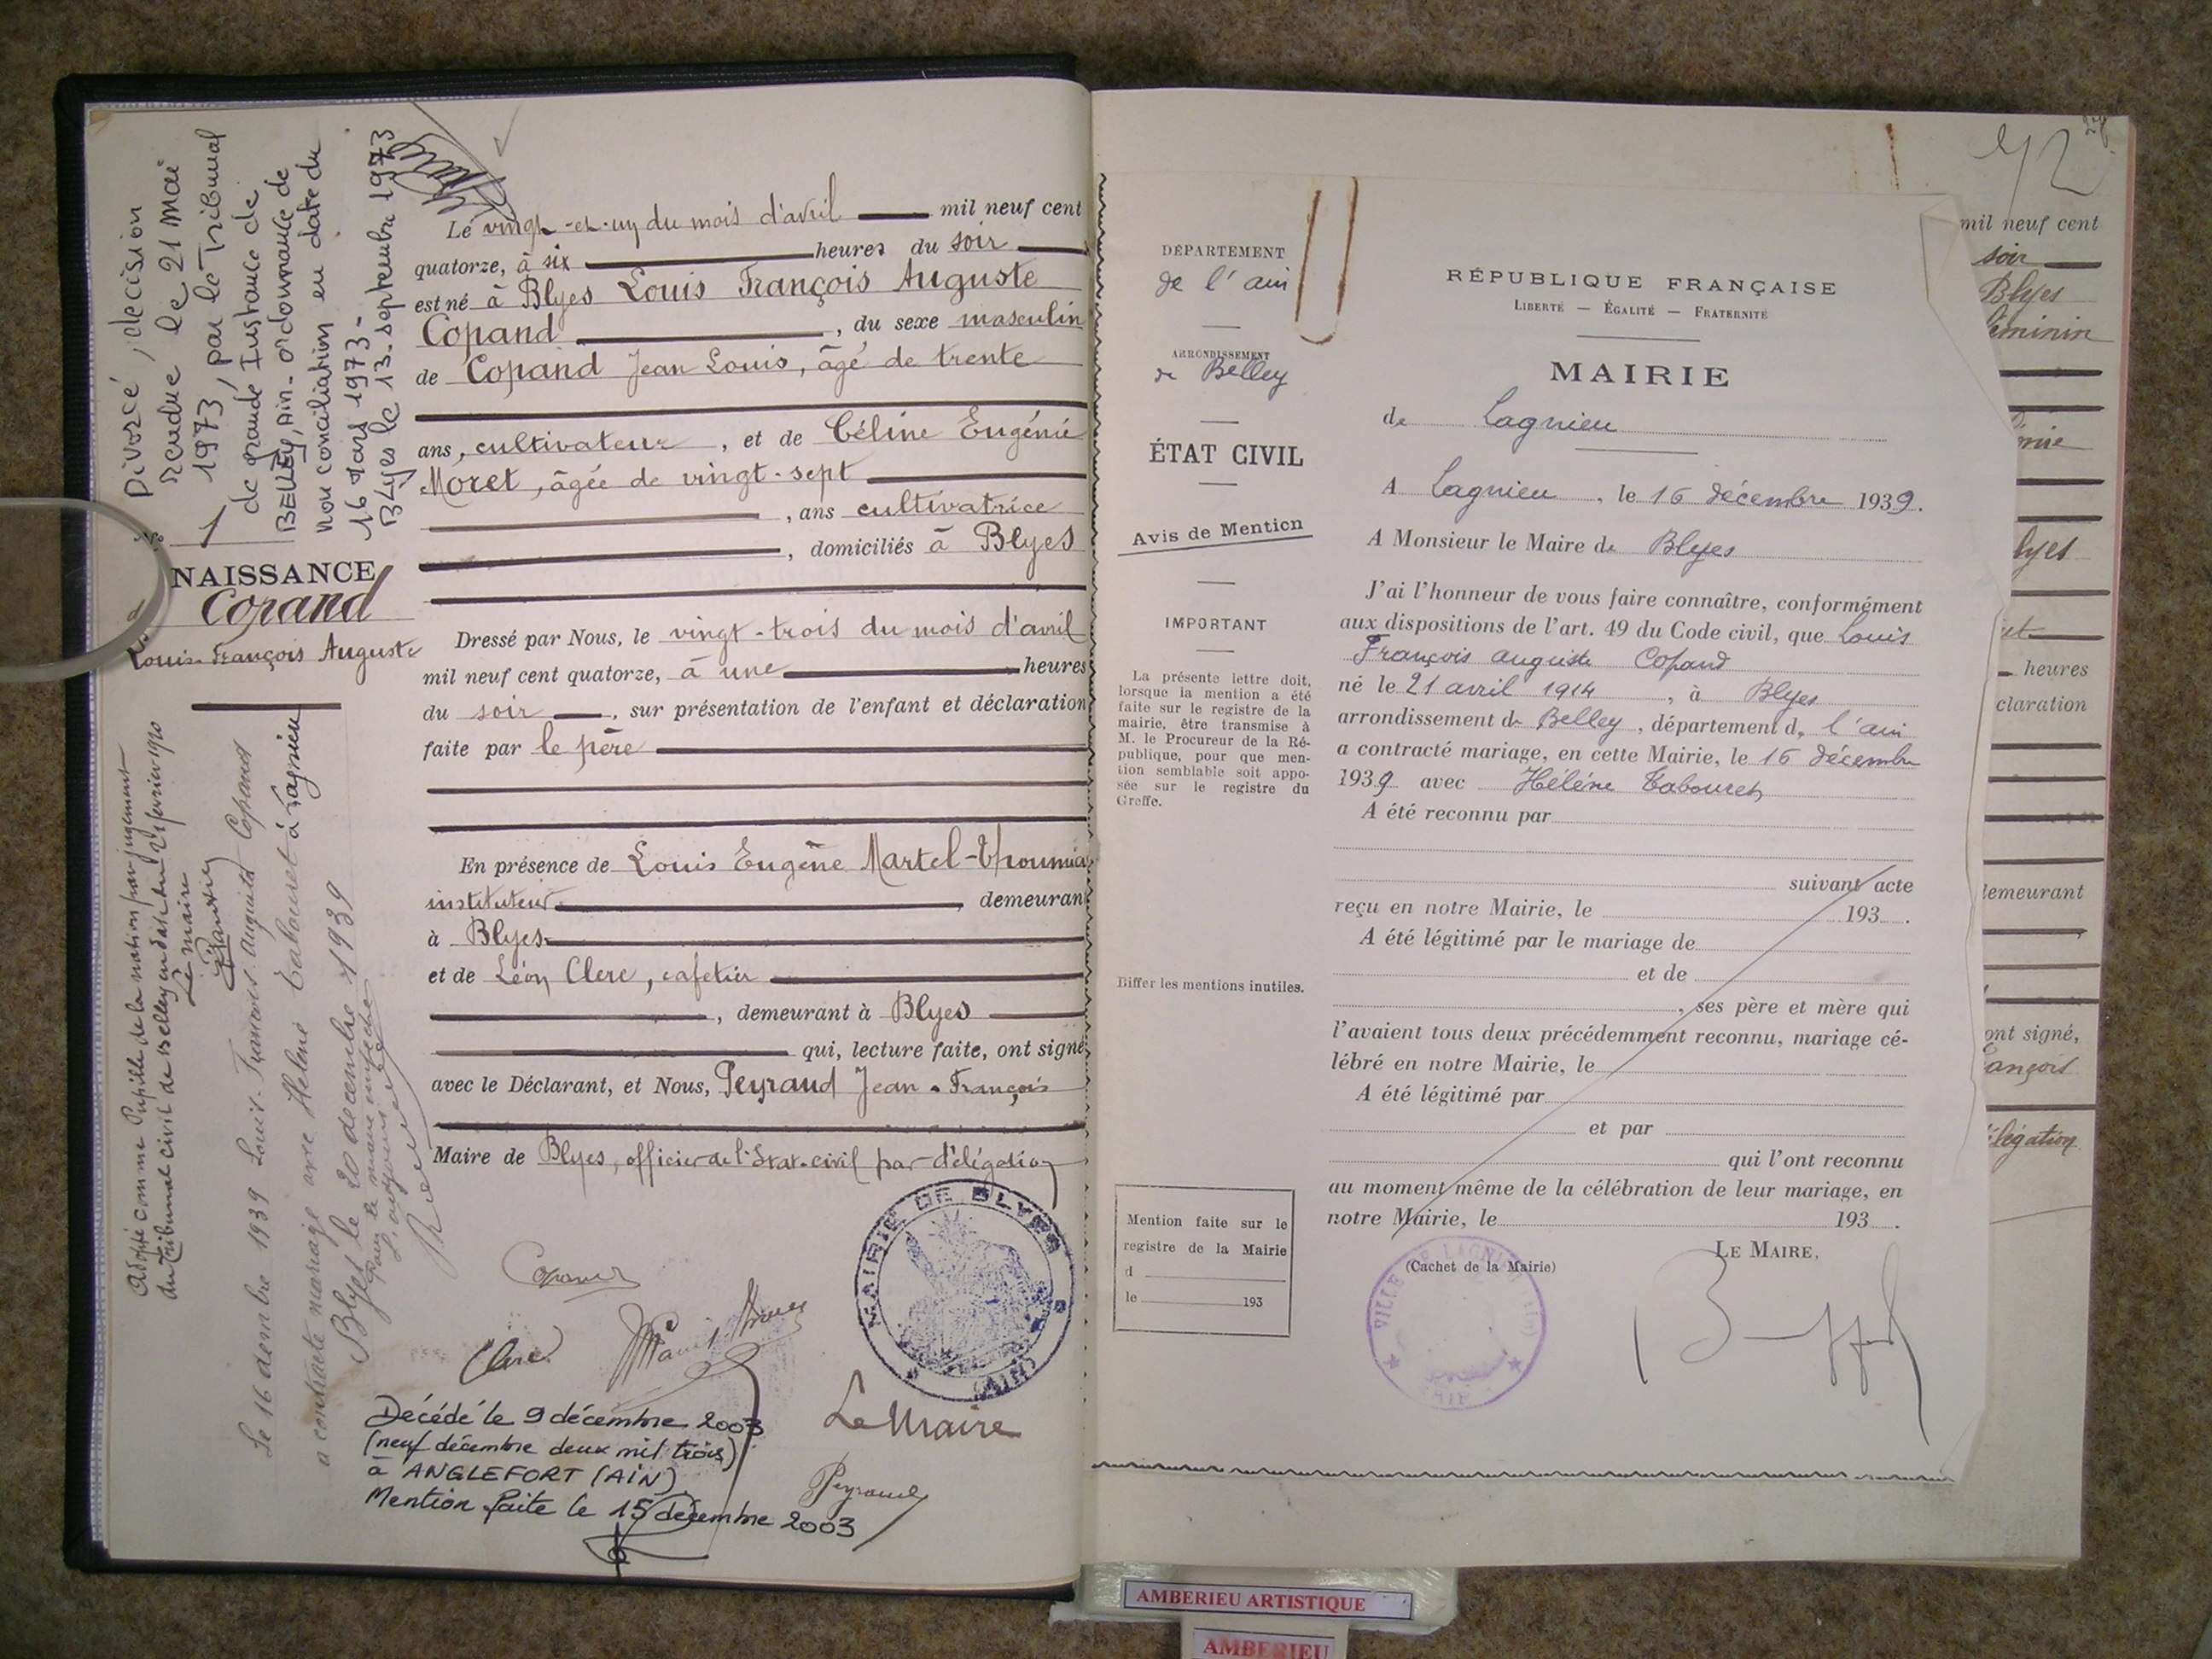 Divorcé, décision
rendue le 21 mai
1973, par le Tribunal
de grande Instance de
BELLEY, Ain. ordonnance de
non conciliation en date du
16 mars 1973 -
BLYES le 13 septembre 1973
No 1
NAISSANCE
d
Copand
Louis François Auguste
Adopté comme Pupille de la nation par jugement
du Tribunal civil de Belley en date du février 1920
Le maire
Le 16 décembre 1939 Louis François Auguste Copand
a contracté mariage avec Hélène Tabouret à Lagnieu
Blyes le 20 décembre 1939
Pour le maire empêché
Le vingt-et-un du mois d'avril mil neuf cent
quatorze, à six heures du soir
est né à Blyes Louis François Auguste
Copand , du sexe masculin
de Copand Jean Louis, âgé de trente
ans, cultivateur , et de Céline Eugénie
Moret, âgée de vingt-sept
, ans cultivatrice
, domiciliés à Blyes
Dressé par Nous, le vingt-trois du mois d'avril
mil neuf cent quatorze, à une heures
du soir , sur présentation de l'enfant et déclaration
faite par le père
En présence de Louis Eugène Martel-
instituteur , demeuran
à Blyes
et de Léon Clerc, cafetier
, demeurant à Blyes
qui, lecture faite, ont signé
avec le Déclarant, et Nous, Peyraud Jean-François
Maire de Blyes, officier de l'état-civil par délégation
Copand
Clerc
MAIRIE DE BLYES
(AIN)
Le Maire
Peyraud
Décédé le 9 décembre 2003
(neuf décembre deux mil trois)
à ANGLEFORT (AIN)
Mention faite le 15 décembre 2003
DÉPARTEMENT
de l'ain
ARRONDISSEMENT
de Belley
ÉTAT CIVIL
Avis de Mention
IMPORTANT
La présente lettre doit,
lorsque la mention a été
faite sur le registre de la
mairie, être transmise à
M. le Procureur de la Ré-
publique, pour que men-
tion semblable soit appo-
sée sur le registre du
Greffe.
Biffer les mentions inutiles.
Mention faite sur le
registre de la Mairie
d
le 193
RÉPUBLIQUE FRANÇAISE
LIBERTÉ — ÉGALITÉ — FRATERNITÉ
MAIRIE
de Lagnieu
A Lagnieu , le 16 décembre 1939.
A Monsieur le Maire de Blyes
J'ai l'honneur de vous faire connaître, conformément
aux dispositions de l'art. 49 du Code civil, que Louis
François auguste Copand
né le 21 avril 1914 , à Blyes
arrondissement de Belley, département d, l'ain
a contracté mariage, en cette Mairie, le 16 décembre
1939 avec Hélène Tabouret
A été reconnu par
suivant acte
reçu en notre Mairie, le 193 .
A été légitimé par le mariage de
et de
, ses père et mère qui
l'avaient tous deux précédemment reconnu, mariage cé-
lébré en notre Mairie, le
A été légitimé par
et par
qui l'ont reconnu
au moment même de la célébration de leur mariage, en
notre Mairie, le 193 .
LE MAIRE,
(Cachet de la Mairie)
VILLE DE LAGNIEU
mil neuf cent
soir
Blyes
féminin
lyes
heures
claration
demeurant
ont signé,
ançois
élégation
AMBERIEU ARTISTIQUE
AMBERIEU